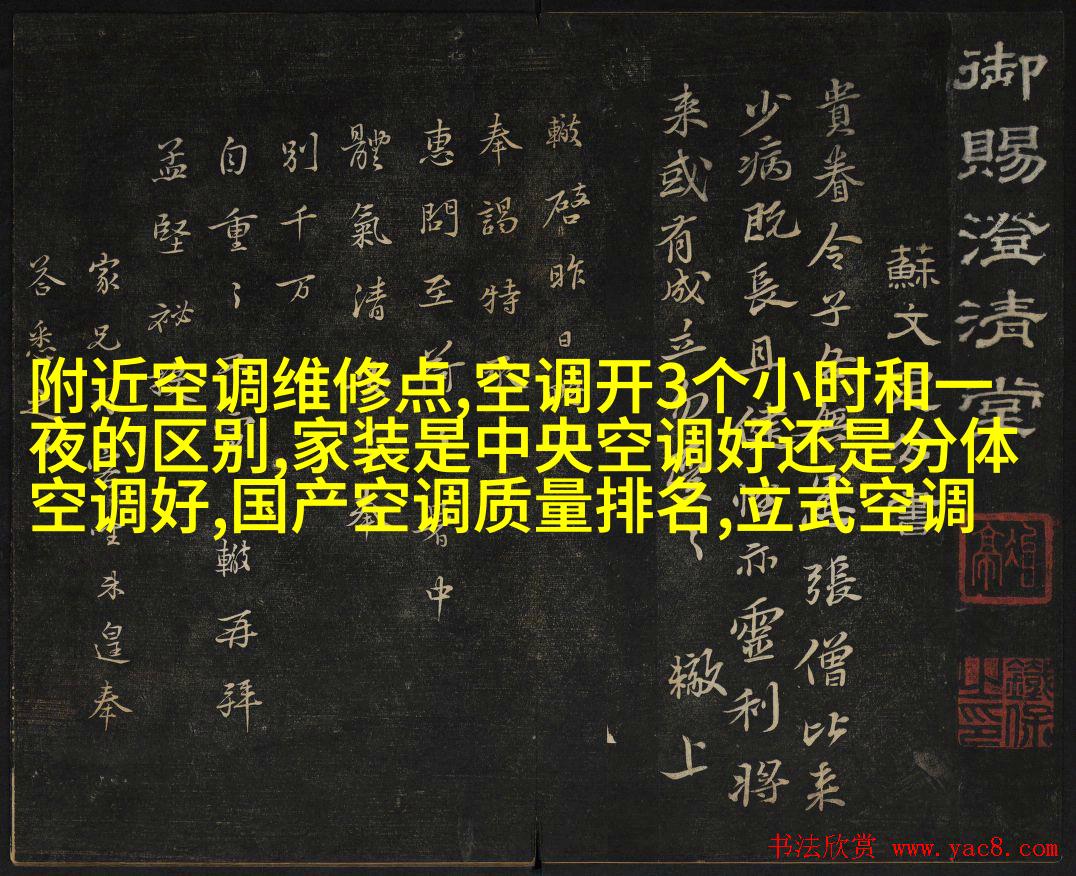 附近空调维修点,空调开3个小时和一
夜的区别,家装是中央空调好还是分体
空调好,国产空调质量排名,立式空调
御賜澄清堂
蘇文
貴眷令子
張僧比来
少病既長且
亦靈利將
来或有成立
轍上
轍啓昨日
奉謁特
惠問至
中
體氣清
别千万
自重〻
轍再拜
孟堅祕
家兄
未遑奉
答悉
書法欣赏 www.yac8.com